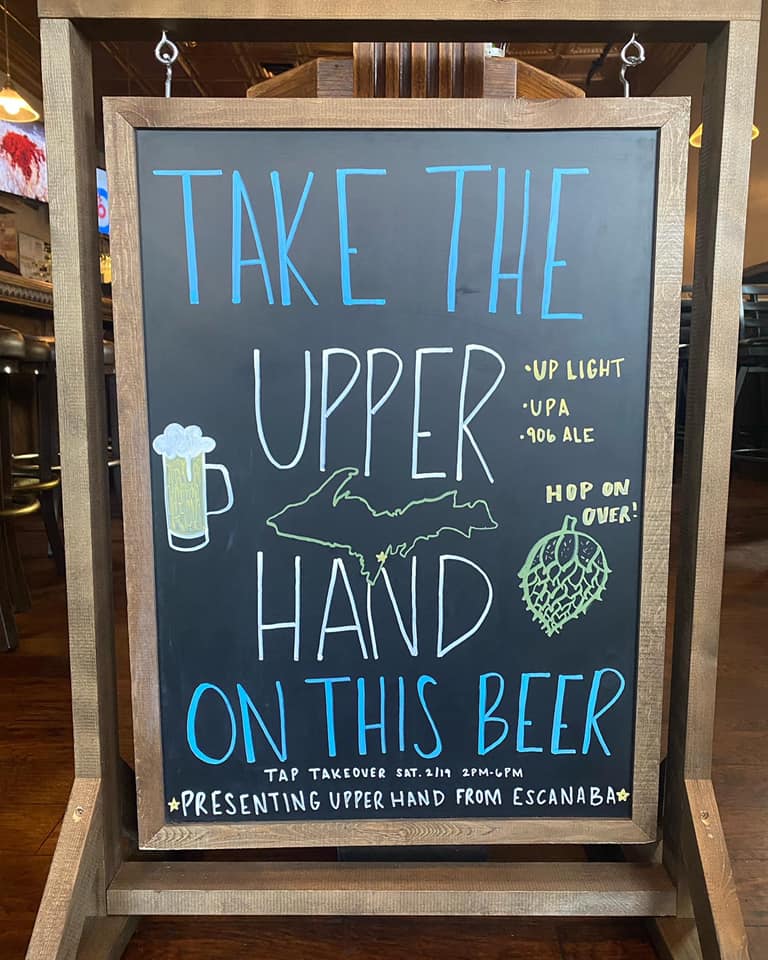 TAKE THE
UPPER
•UP LIGHT
•UPA
•906 ALE
HOP ON
OVER!
HAND
ON THIS BEER
TAP TAKEOVER SAT. 2/19 2PM-6PM
PRESENTING UPPER HAND FROM ESCANABA